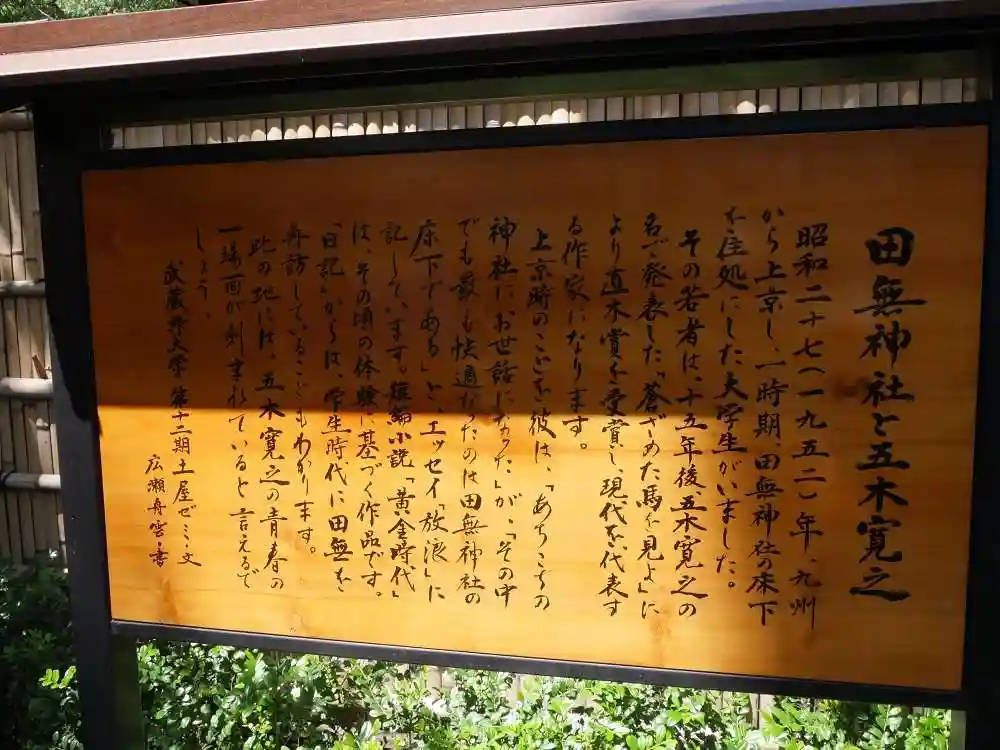 田無神社と五木寛之
昭和二十七(一九五二)年、九州
から上京し、一時期田無神社の床下
を住処にした大学生がいました。
その若者は、十五年後、五木寛之の
名で発表した「蒼ざめた馬を見よ」に
より直木賞を受賞し、現代を代表す
る作家になります。
上京時のことを彼は、「あちこちの
神社にお世話になった」が、「その中
でも最も快適だったのは田無神社の
床下である」と、エッセイ「放浪」に
記しています。短編小説「黄金時代」
は、その頃の体験に基づく作品です。
「日記」からは、学生時代に田無を
再訪していることもわかります。
此の地には、五木寛之の青春の
一場面が刻まれていると言えるで
しょう。
武蔵野大学 第十二期土屋ゼミ・文
広瀬舟雲書